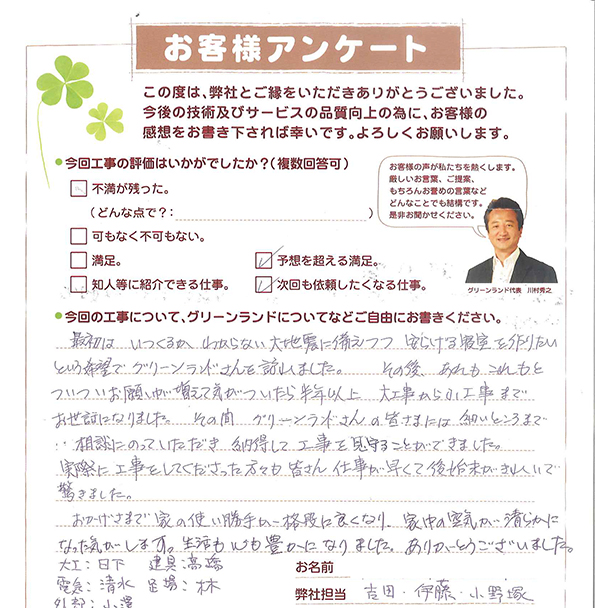 お客様アンケート
この度は、弊社とご縁をいただきありがとうございました。
今後の技術及びサービスの品質向上の為に、お客様の
感想をお書き下されば幸いです。よろしくお願いします。
●今回工事の評価はいかがでしたか?(複数回答可)
不満が残った。
(どんな点で?: )
可もなく不可もない。
満足。
予想を超える満足。
知人等に紹介できる仕事。
次回も依頼したくなる仕事。
お客様の声が私たちを熱くします。
厳しいお言葉、ご提案、
もちろんお誉めの言葉など
どんなことでも結構です。
是非お聞かせください。
グリーンランド代表 川村秀之
●今回の工事について、グリーンランドについてなどご自由にお書きください。
最初は いつくるか わからない 大地震に備えつつ 安らげる寝室を作りたい
という希望で グリーンランドさんを訪いました。 その後、あれも これもと
ついついお願いが増えて気がついたら半年以上 大工事から小工事まで
お世話になりました。 その間 グリーンランドさんの皆さまには 細いところまで
相談にのっていただき 納得して 工事を見守ることができました。
実際に工事をしてくださった方々も 皆さん 仕事が早くて後始末がきれいで
驚きました。
おかげさまで 家の使い勝手が格段に良くなり、家中の空気が 清らかに
なった気がします。生活も心も豊かになりました。ありがとうございました。
大工:日下 建具:高橋
電気:清水 足場:林
外部:小澤
お名前
弊社担当 吉田・伊藤・小野塚